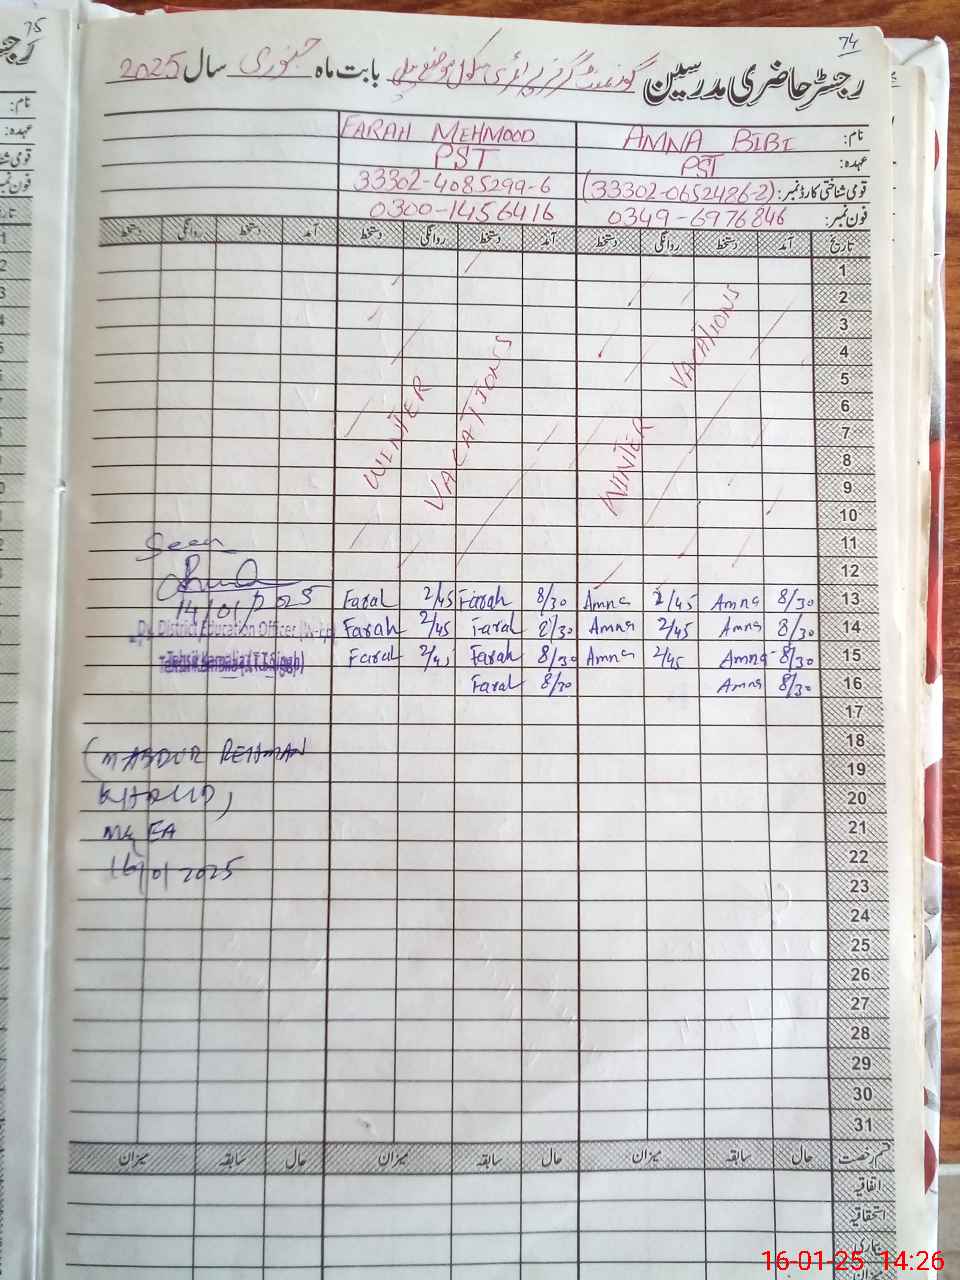 75
74
رجسٹر حاضری مدرسین گورنمنٹ گرلز پرائمری سکول موضع بابت ماہ جنوری سال 2025
نام: AMNA BIBI FARAH MEHMOOD
عہدہ: PST PST
قومی شناختی کارڈ نمبر: (33302-0652486-2) 33302-4085299-6
فون نمبر: 0349-6976846 0300-1456416
تاریخ آمد دستخط روانگی دستخط آمد دستخط روانگی دستخط آمد دستخط روانگی دستخط
1
2
3
4
5
6
7
8
9
10
11
12
WINTER VACATIONS
WINTER VACATIONS
13 8/30 Amna 2/45 Amna 8/30 Farah 2/45 Farah
14 8/30 Amna 2/45 Amna 8/30 Faral 2/45 Farah
15 8/30 Amna 2/45 Amna 8/30 Farah 2/45 Faral
16 8/30 Amna 8/30 Faral
17
18
19
20
21
22
23
24
25
26
27
28
29
30
31
Seen
14/01/2025
Dy. District Education Officer (W-EE)
(M ABDUR REHMAN
KHALID)
MEA
16/01/2025
قسم رخصت حال سابقہ میزان حال سابقہ میزان حال سابقہ میزان
اتفاقیہ
استحقاقیہ
بیماری
میزان
16-01-25 14:26